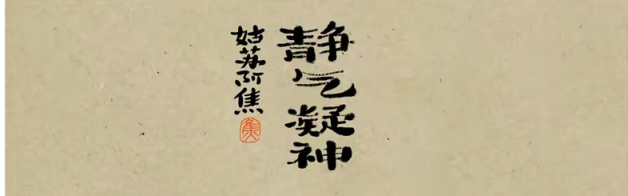 静气凝神
姑苏阿焦